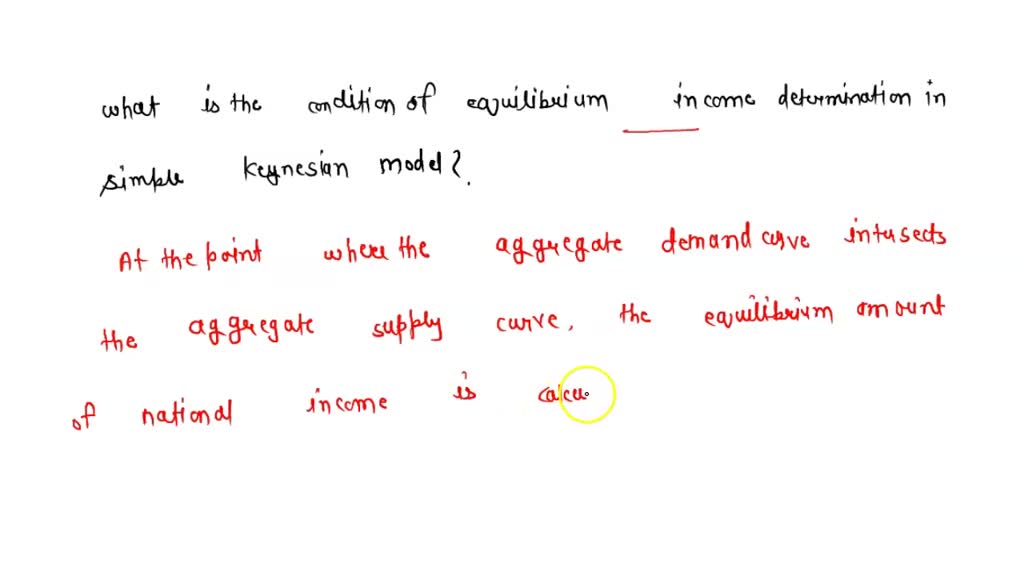 what is the condition of equilibrium income determination in
simple keynesian model?
At the point where the aggregate demand curve intersects
the aggregate supply curve, the equilibrium amount
of national income is calcu